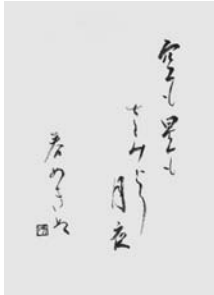 空も星も
さみどり月夜
春めきぬ